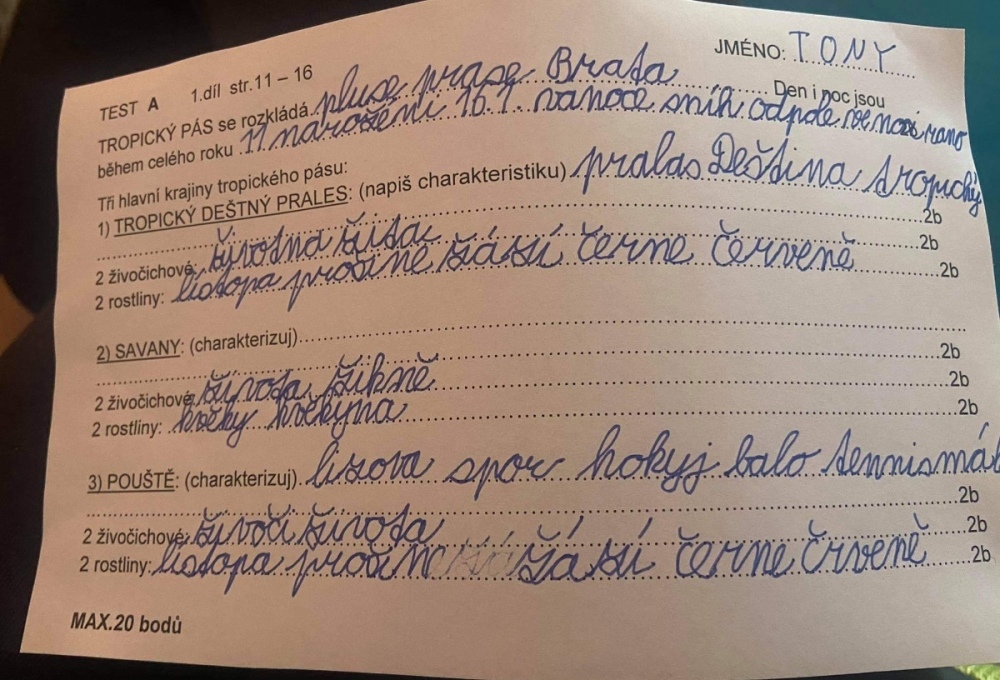 JMÉNO: TONY
TEST A 1.díl str.11 – 16
TROPICKÝ PÁS se rozkládá pluse prase Brata Den i noc jsou
během celého roku 11 narošeni 16.1. vanoce sníh odpde ve noci rano
Tři hlavní krajiny tropického pásu:
1) TROPICKÝ DEŠTNÝ PRALES: (napiš charakteristiku) pralas Deština tropický
2b
2 živočichové: životna žita 2b
2 rostliny: listopa pročině žásí černe červeně 2b
2) SAVANY: (charakterizuj)
2b
2 živočichové: života žikně 2b
2 rostliny: květky květyna 2b
3) POUŠTĚ: (charakterizuj) lisova spor hokyj balo tennis
2b
2 živočichové: živoči života 2b
2 rostliny: listopa pročine žásí černe črveně 2b
MAX.20 bodů